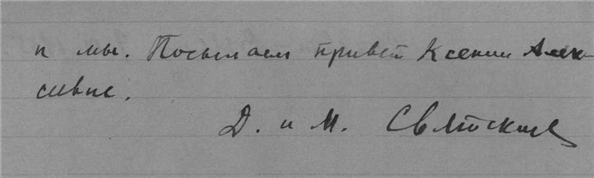 и мы. Посылаем привет Ксении Алек-
сеевне.
Д. и М. Святские